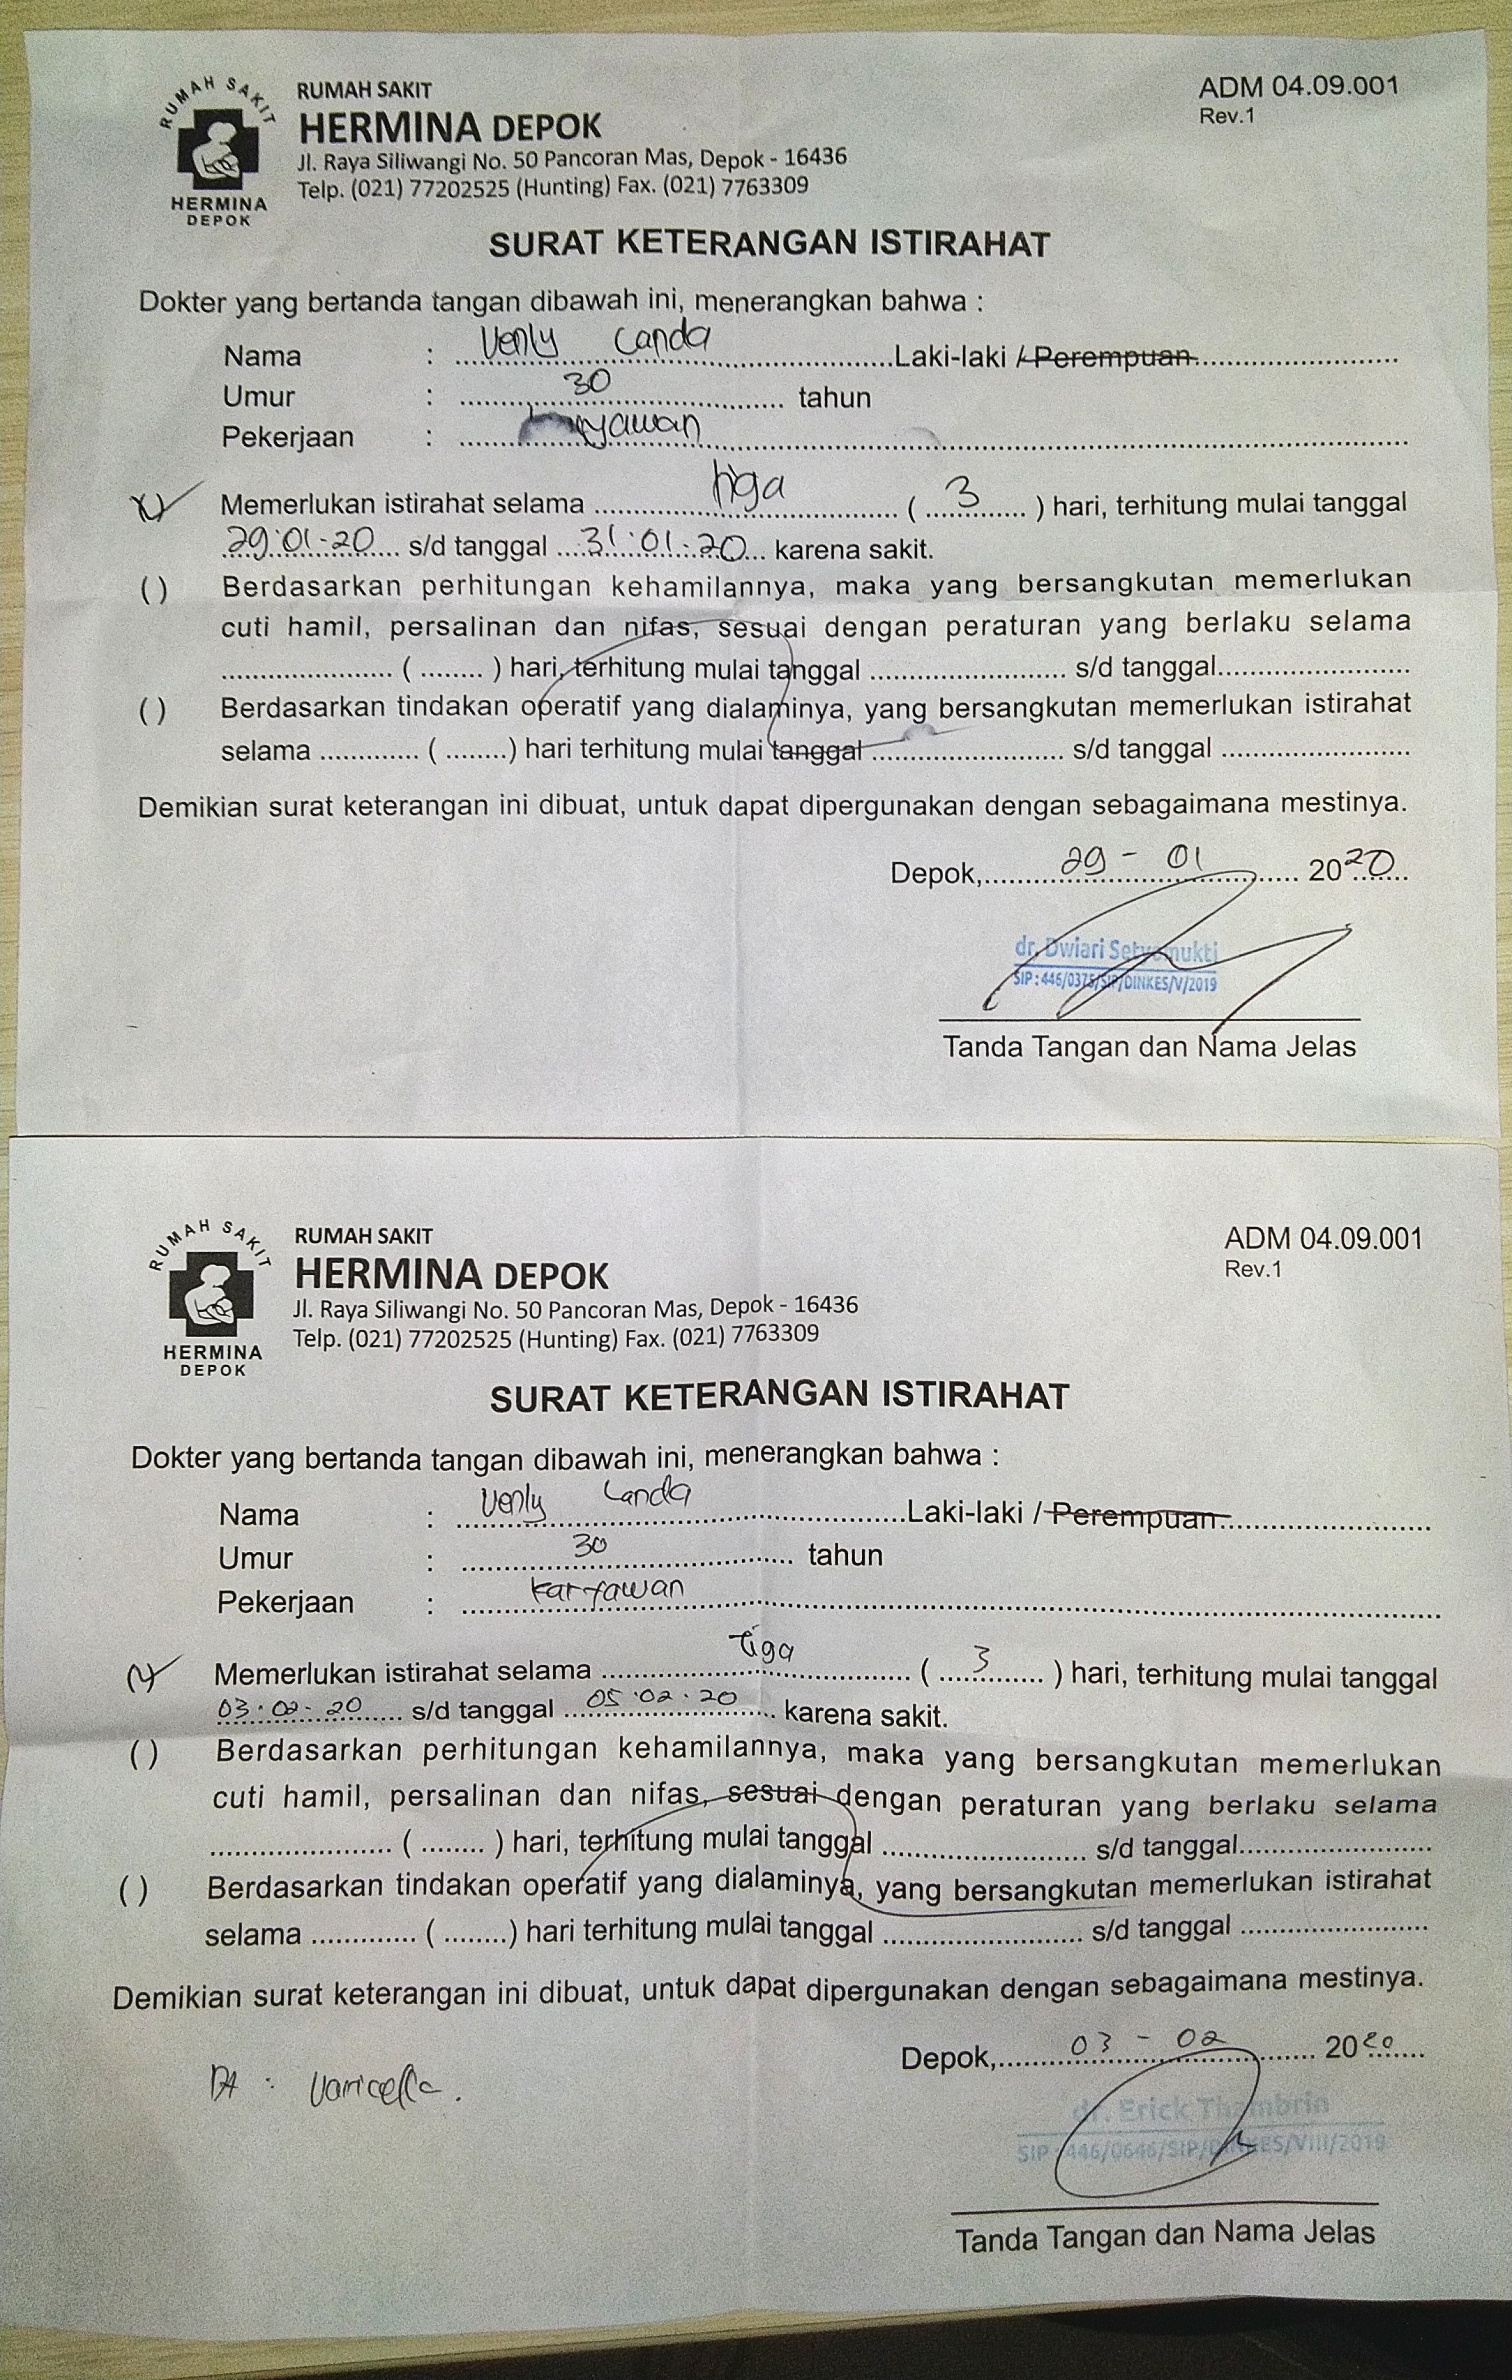 RUMAH SAKIT
HERMINA
DEPOK
RUMAH SAKIT
HERMINA DEPOK
Jl. Raya Siliwangi No. 50 Pancoran Mas, Depok - 16436
Telp. (021) 77202525 (Hunting) Fax. (021) 7763309
ADM 04.09.001
Rev.1
SURAT KETERANGAN ISTIRAHAT
Dokter yang bertanda tangan dibawah ini, menerangkan bahwa :
Nama : Venly Canda Laki-laki / Perempuan
Umur : 30 tahun
Pekerjaan :
Memerlukan istirahat selama tiga ( 3 ) hari, terhitung mulai tanggal
29-01-20 s/d tanggal 31-01-20 karena sakit.
( ) Berdasarkan perhitungan kehamilannya, maka yang bersangkutan memerlukan
cuti hamil, persalinan dan nifas, sesuai dengan peraturan yang berlaku selama
.................... ( ........ ) hari, terhitung mulai tanggal ........................ s/d tanggal........................
( ) Berdasarkan tindakan operatif yang dialaminya, yang bersangkutan memerlukan istirahat
selama ............. ( ........) hari terhitung mulai tanggal ........................ s/d tanggal ........................
Demikian surat keterangan ini dibuat, untuk dapat dipergunakan dengan sebagaimana mestinya.
Depok, 29 - 01 2020
dr. Dwiari Setyamukti
SIP : 446/0375/SIP/DINKES/V/2019
Tanda Tangan dan Nama Jelas
RUMAH SAKIT
HERMINA
DEPOK
RUMAH SAKIT
HERMINA DEPOK
Jl. Raya Siliwangi No. 50 Pancoran Mas, Depok - 16436
Telp. (021) 77202525 (Hunting) Fax. (021) 7763309
ADM 04.09.001
Rev.1
SURAT KETERANGAN ISTIRAHAT
Dokter yang bertanda tangan dibawah ini, menerangkan bahwa :
Nama : Venly Canda Laki-laki / Perempuan
Umur : 30 tahun
Pekerjaan : karyawan
Memerlukan istirahat selama tiga ( 3 ) hari, terhitung mulai tanggal
03-02-20 s/d tanggal 05-02-20 karena sakit.
( ) Berdasarkan perhitungan kehamilannya, maka yang bersangkutan memerlukan
cuti hamil, persalinan dan nifas, sesuai dengan peraturan yang berlaku selama
.................... ( ........ ) hari, terhitung mulai tanggal ........................ s/d tanggal........................
( ) Berdasarkan tindakan operatif yang dialaminya, yang bersangkutan memerlukan istirahat
selama ............. ( ........) hari terhitung mulai tanggal ........................ s/d tanggal ........................
Demikian surat keterangan ini dibuat, untuk dapat dipergunakan dengan sebagaimana mestinya.
Depok, 03 - 02 2020
: Varicella.
dr. Erick Thambrin
SIP : 446/0646/SIP/DINKES/VIII/2019
Tanda Tangan dan Nama Jelas